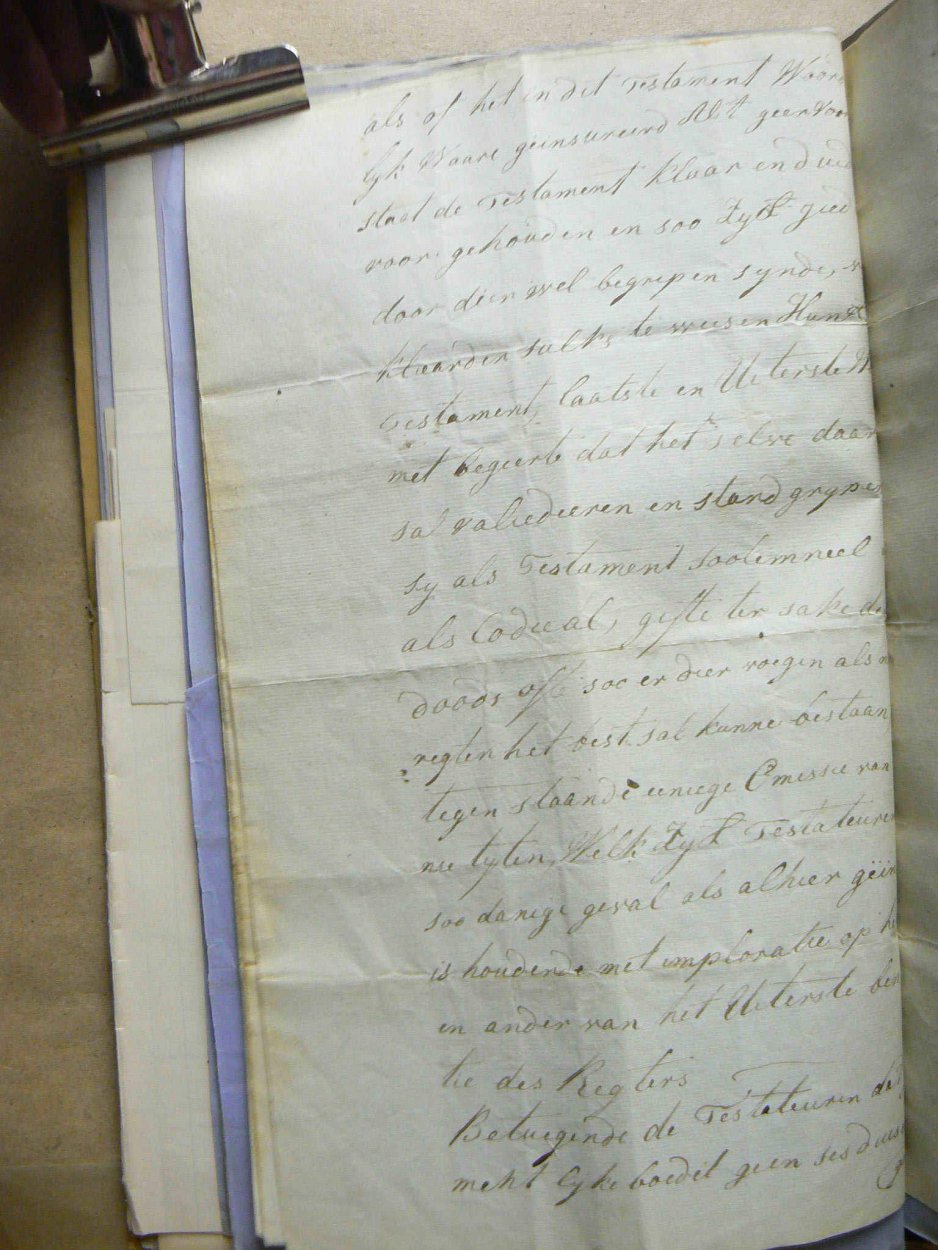 als of het in dit Testament Woor
lyk Waare geinsureerd Alt geen voor
staat de Testament klaar en duid
voor gehouden en soo Zyl gied
door dien wel begrepen synde, v
klaarden sulks te weesen Hun
Testament, laatste en Uiterste W
met begeerte dat het selve daar
sal valiedeeren en stand grypen
sy als Testament soolemneel
als Codicil, gifte ter sake des
doods ofte soo er dier voegen als n
regten het best sal kunne bestaan
tegen staande eeniege Omissie van
nietyten, Welk Zyl Testateuren
soo danige geval als alhier gëin
is houdende met imploratie op h
en ander van het Uiterste ben
tie des Regters
Betuegende de Testateuren de
mehtlyke boedel geen ses duis